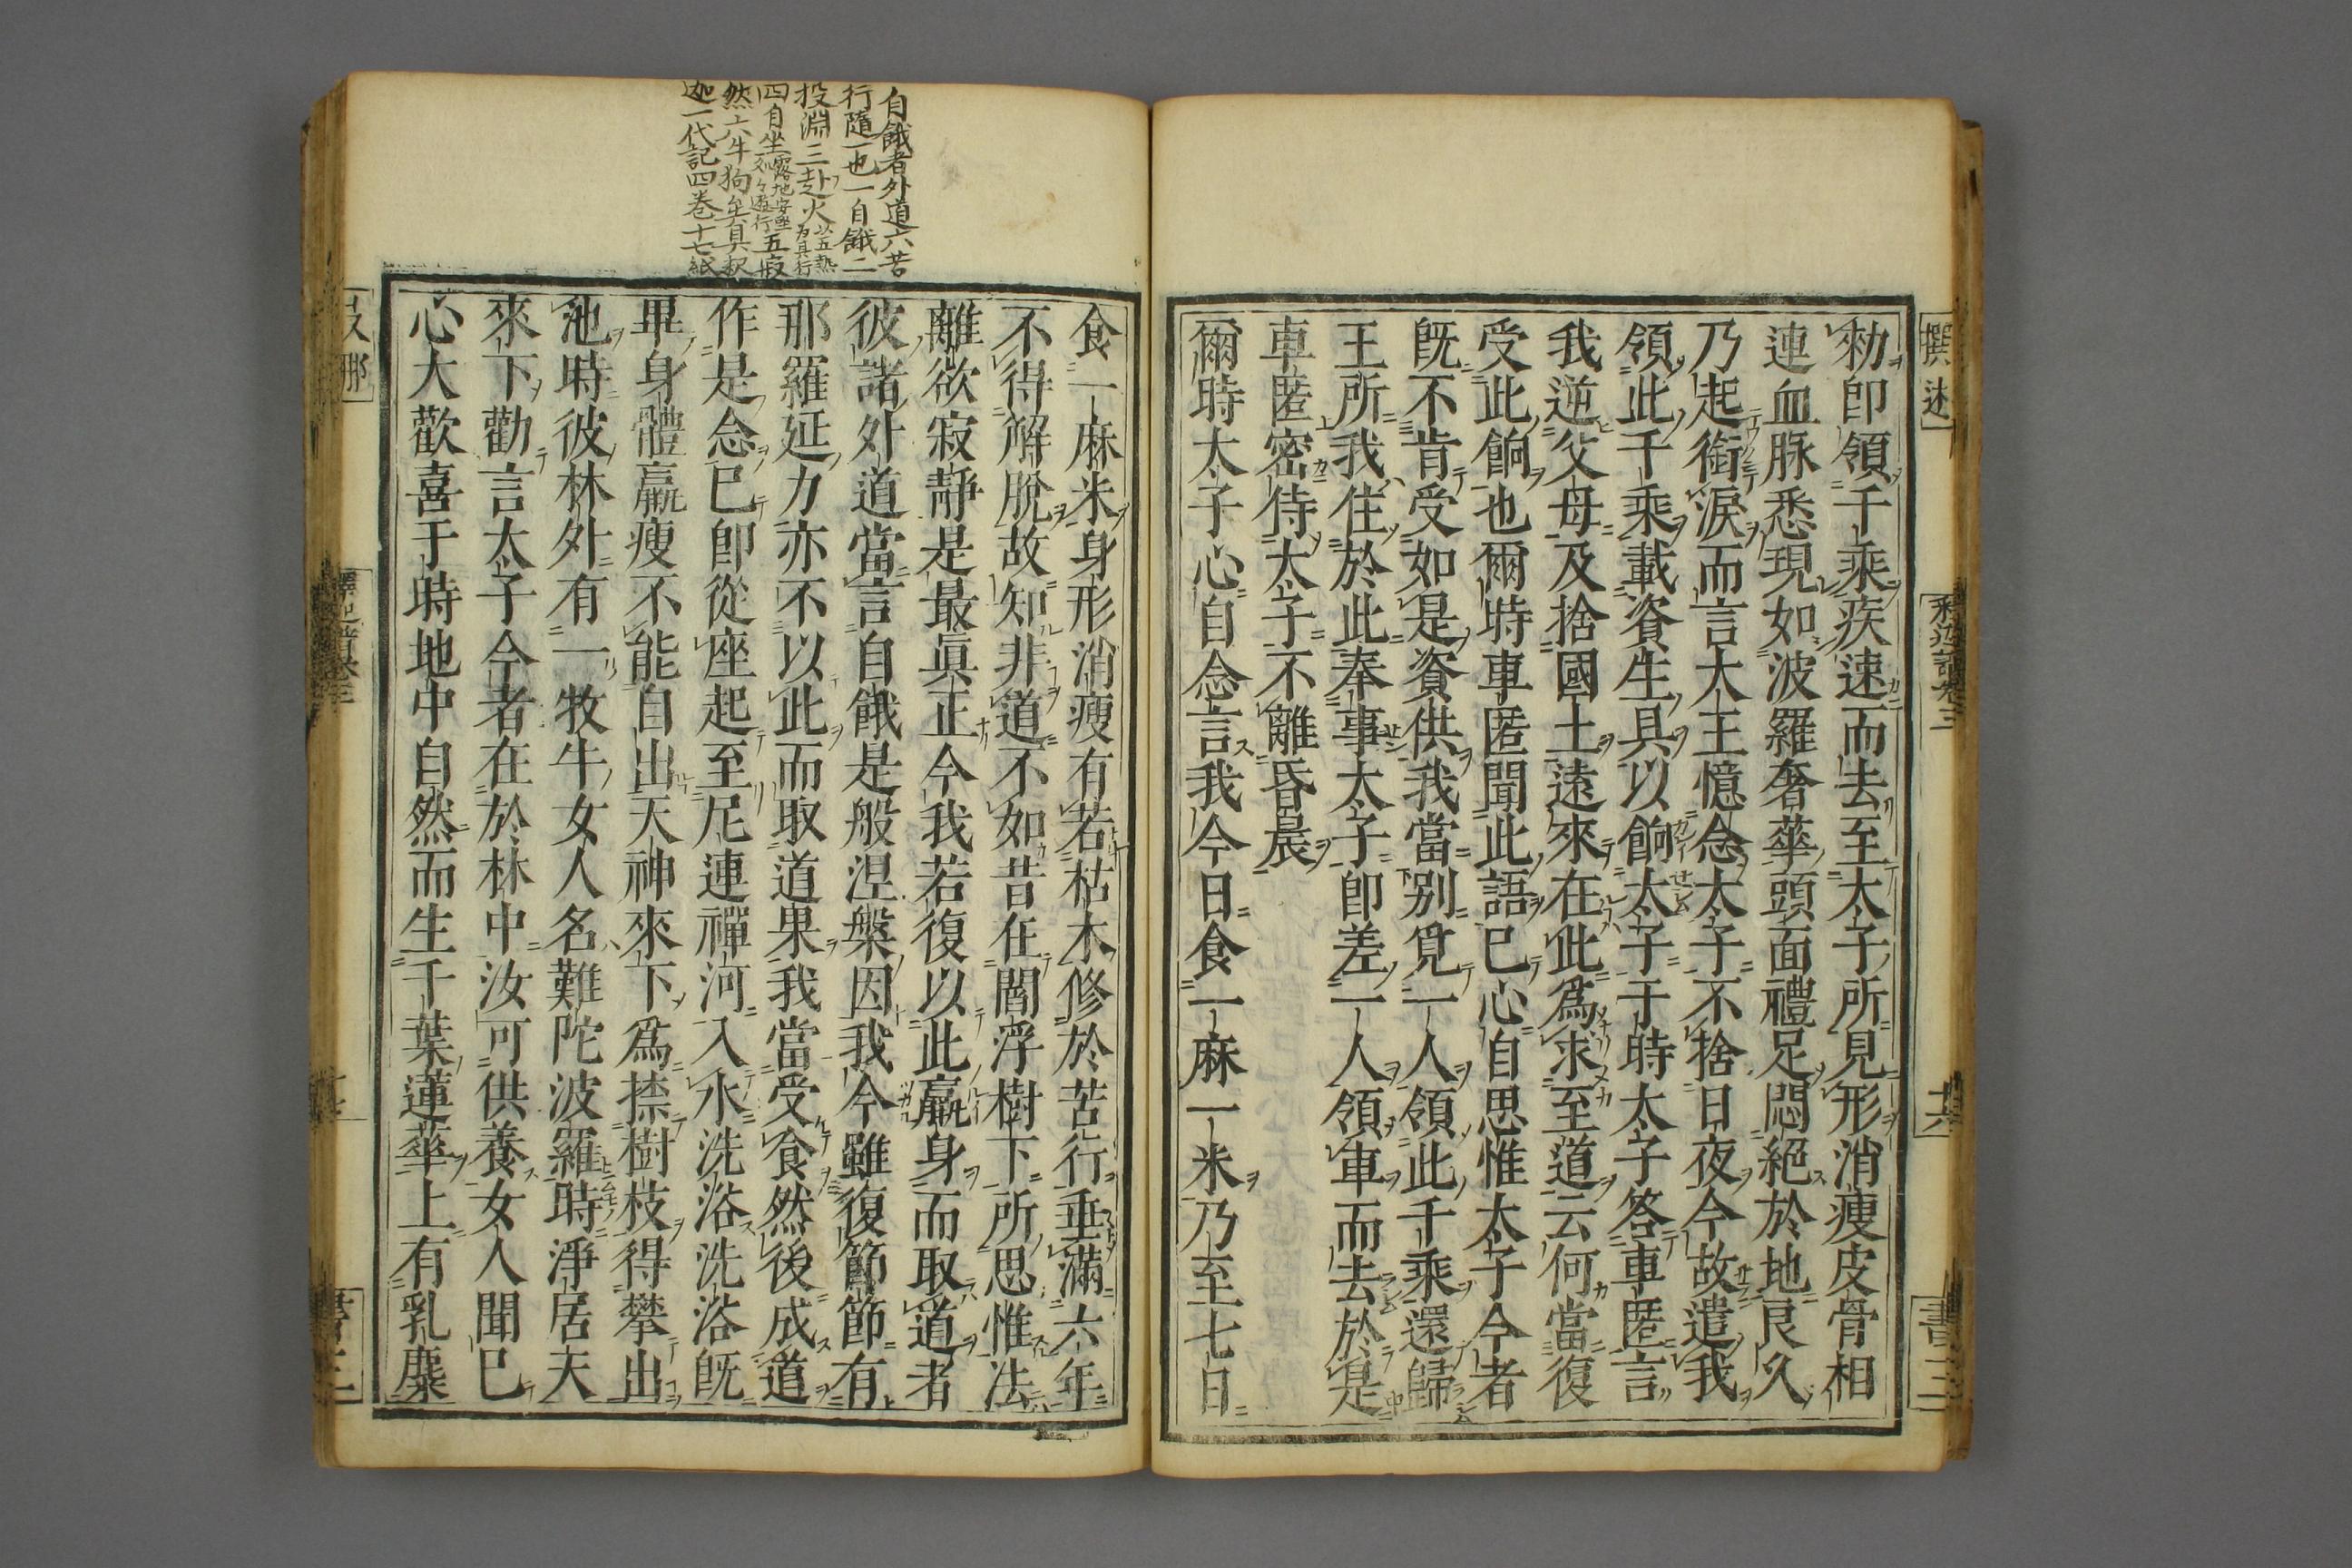 勑即領千乘疾速而去至太子所見形消瘦皮骨相
連血脉悉現如波羅奢華頭面禮足悶絕於地良久
乃起銜淚而言大王憶念太子不捨日夜今故遣我
領此千乘載資生具以餉太子于時太子答車匿言
我逆父母及捨國土遠來在此為求至道云何當復
受此餉也爾時車匿聞此語已心自思惟太子今者
既不肯受如是資供我當別覓一人領此千乘還歸
王所我住於此奉事太子即差一人領車而去於是
車匿密侍太子不離昏晨
爾時太子心自念言我今日食一麻一米乃至七日
食一麻米身形消瘦有若枯木修於苦行垂滿六年
不得解脫故知非道不如昔在閻浮樹下所思惟法
離欲寂靜是最眞正今我若復以此羸身而取道者
彼諸外道當言自餓是般涅槃因我今雖復節節有
那羅延力亦不以此而取道果我當受食然後成道
作是念已即從座起至尼連禪河入水洗浴洗浴既
畢身體羸瘦不能自出天神來下為捺樹枝得攀出
池時彼林外有一牧牛女人名難陀波羅時淨居天
來下勸言太子今者在於林中汝可供養女人聞已
心大歡喜于時地中自然而生千葉蓮華上有乳麋
自餓者外道六苦
行隨一也一自餓二
投淵三赴火以五熱為其行
四自坐露地安坐遊行五寂
然六牛狗矣具釈
迦一代記四巻十七紙
撰述
釈迦譜卷三
十六
書三